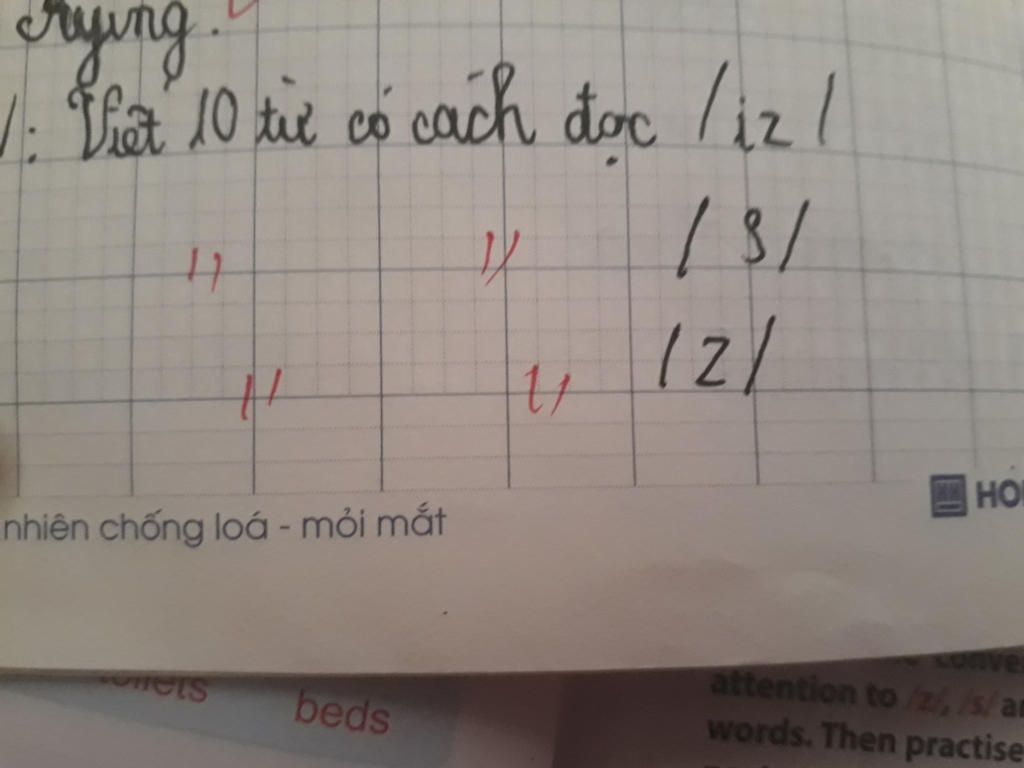 crying.
: Viết 10 từ có cách đọc /iz/
" " /s/
" " /z/
nhiên chống loá - mỏi mắt
toilets beds
attention to /z/, /s/
words. Then practise